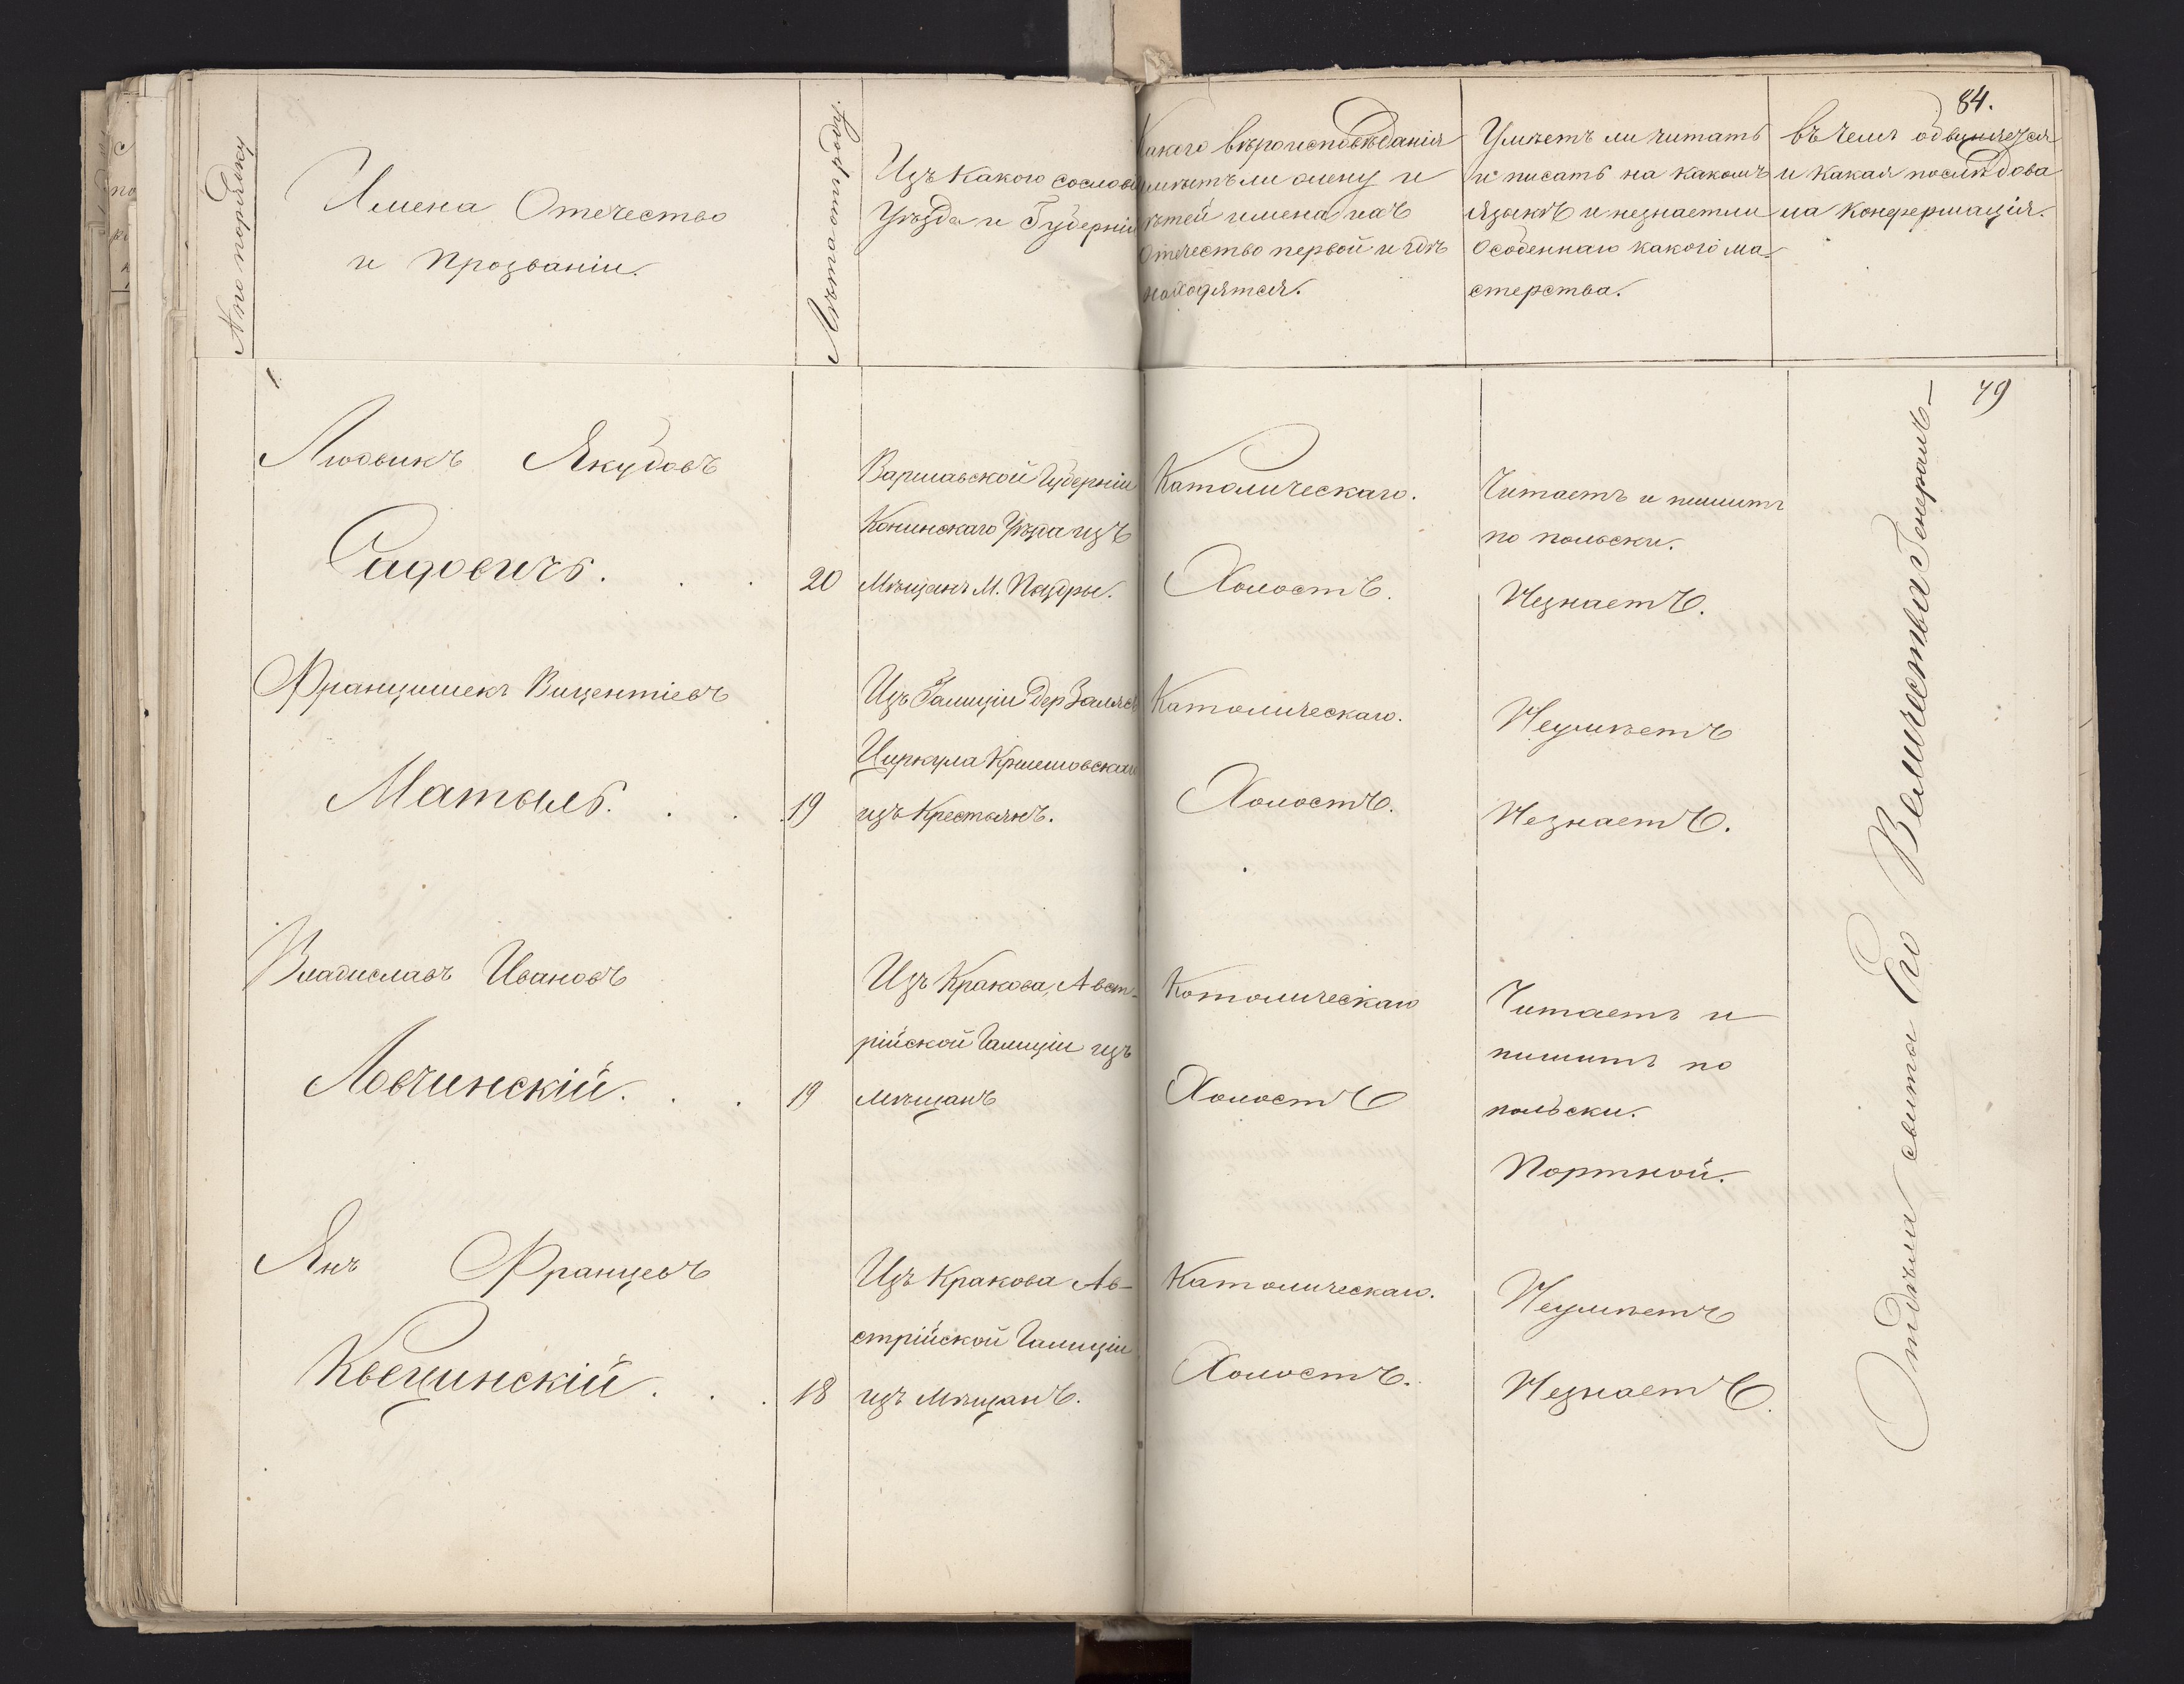 84.
№ по порядку
Имена Отечество
и Прозваніи.
Лѣта отроду.
Изъ какого сослов
Уѣзда и Губерніи
Какаго вѣроисповѣданія
имѣетъ ли жену и
дѣтей имена ихъ
Отечество первой и гдѣ
находятся.
Умѣетъ ли читать
и писать на какомъ
языкѣ и незнаетли
особеннаго какого ма-
стерства.
въ чемъ обвиняется
и какая последова
ла конфермація.
79
1
Людвикъ Якубовъ
Садовичъ.
20
Варшавской Губерніи
Конинскаго Уѣзда изъ
Мѣщанъ М. Пыздры.
Католическаго.
Холостъ.
Читаетъ и пишитъ
по польски.
Незнаетъ.
Францишекъ Вицентіевъ
Матыль.
19
Изъ Галиціи Дер
Циркула
изъ Крестьянъ.
Католическаго.
Холостъ.
Неумѣетъ
Незнаетъ.
Владиславъ Ивановъ
Ловчинскій.
19
Изъ Кракова, Авст-
рійской Галиціи изъ
мѣщанъ
Католическаго
Холостъ
Читаетъ и
пишитъ по
польски.
Портной.
Янъ Францевъ
Квецинскій.
18
Изъ Кракова Ав-
стрійской Галиціи
изъ мѣщанъ.
Католическаго.
Холостъ.
Неумѣетъ
Незнаетъ.
Отдѣла свита Его Величества Генералъ-